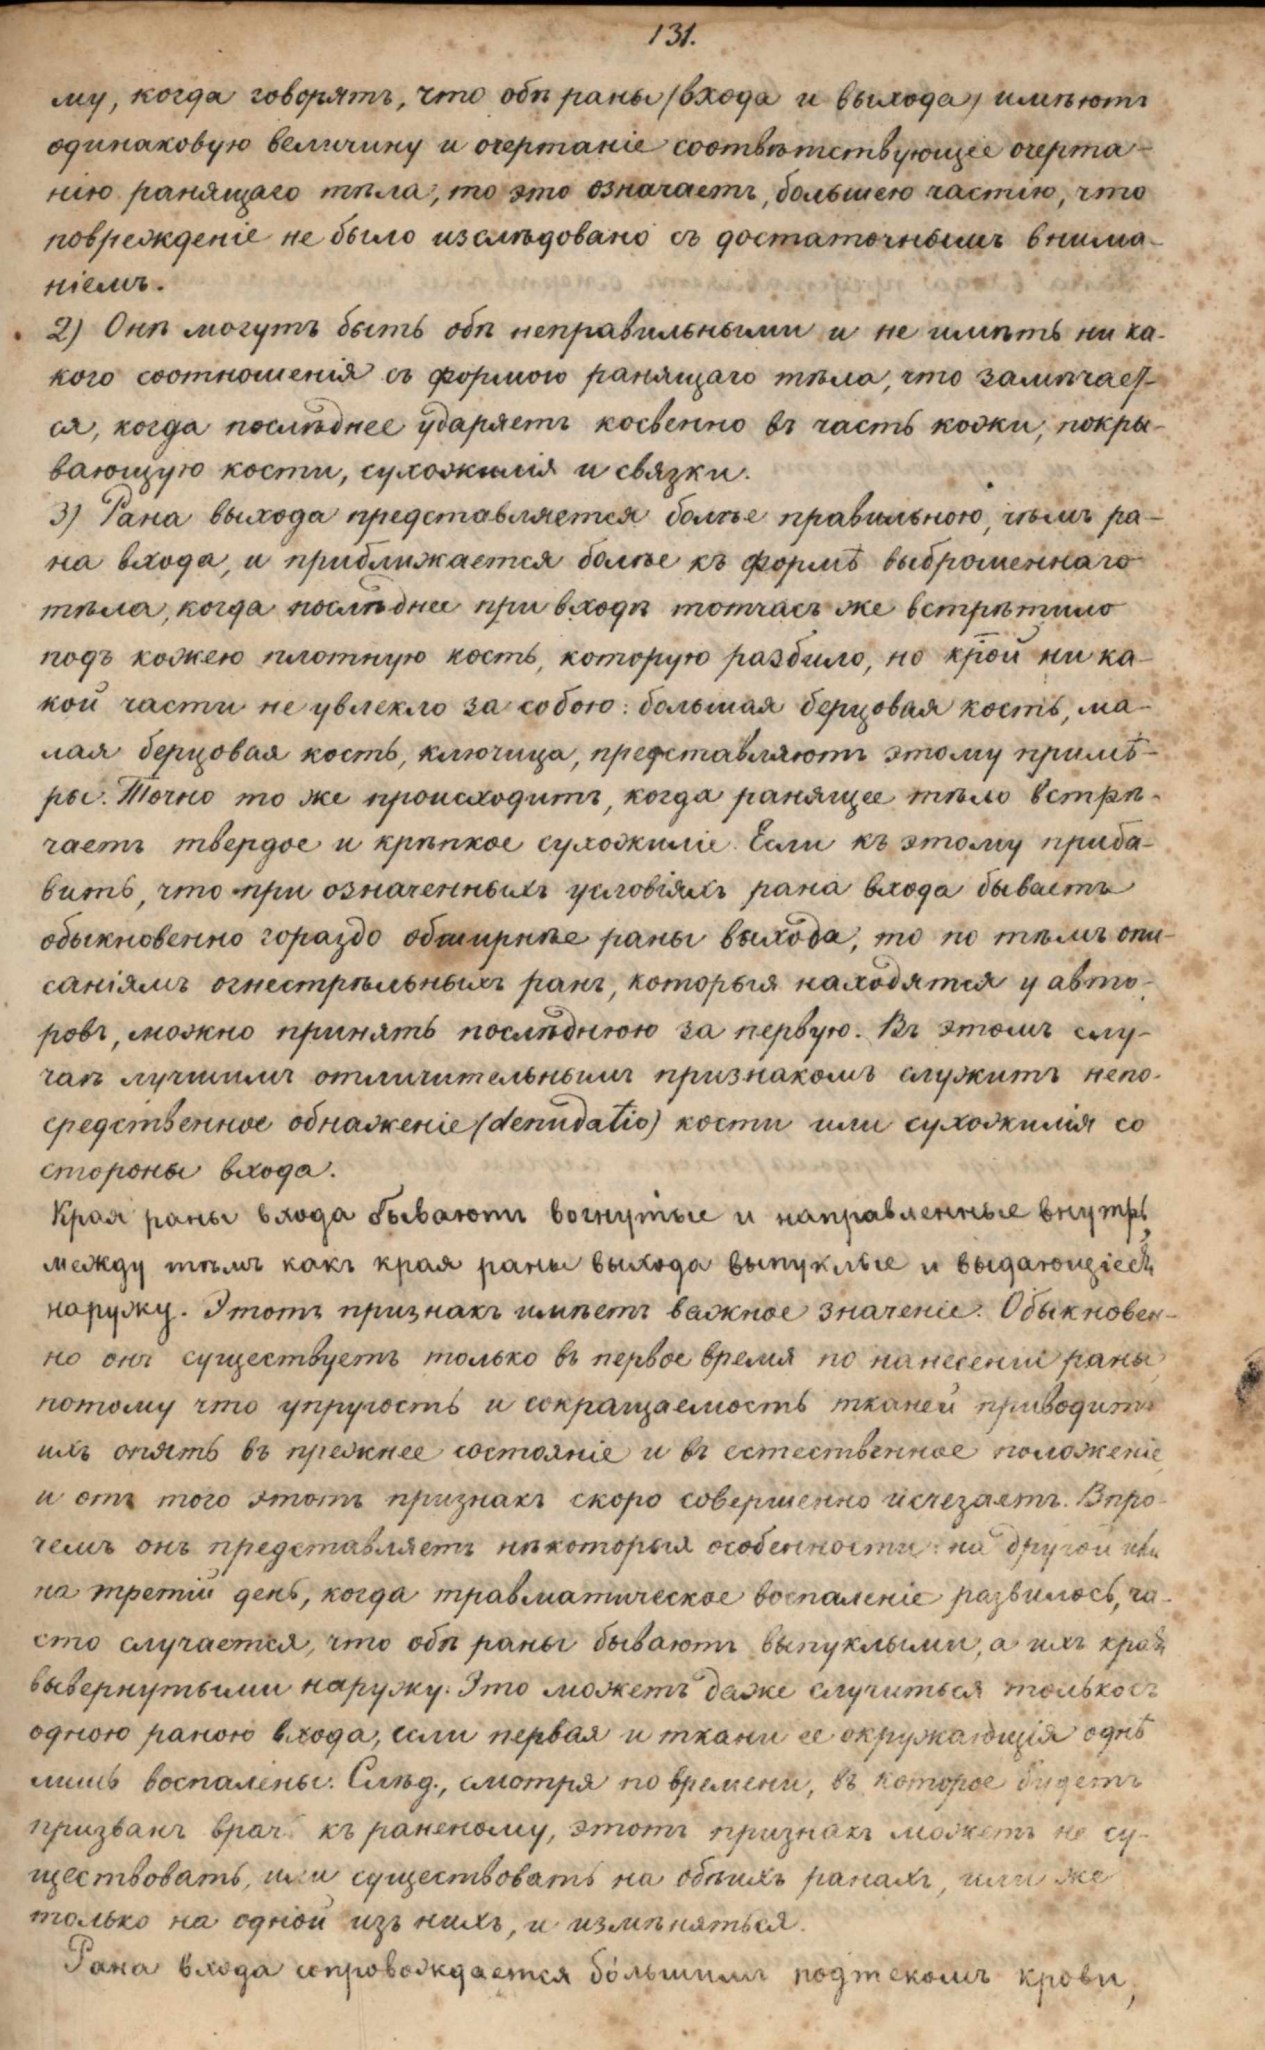 131.
му, когда говорятъ, что обѣ раны (входа и выхода) имѣютъ
одинаковую величину и очертаніе соотвѣтствующее очерта-
нію ранящаго тѣла, то это означаетъ, большею частію, что
поврежденіе не было изслѣдовано съ достаточнымъ внима-
ніемъ.
2) Онѣ могутъ быть обѣ неправильными и не имѣть ни ка-
кого соотношенія съ формою ранящаго тѣла, что замѣчает-
ся, когда послѣднее ударяетъ косвенно въ часть кожи, покры-
вающую кости, сухожилія и связки.
3) Рана выхода представляется болѣе правильною, чѣмъ ра-
на входа, и приближается болѣе къ формѣ выброшеннаго
тѣла, когда послѣднее при входѣ тотчасъ же встрѣтило
подъ кожею плотную кость, которую разбило, но крой ни ка-
кой части не увлекло за собою: большая берцовая кость, ма-
лая берцовая кость, ключица, представляютъ этому примѣ-
ры. Точно то же происходитъ, когда ранящее тѣло встрѣ-
чаетъ твердое и крѣпкое сухожиліе. Если къ этому приба-
вить, что при означенныхъ условіяхъ рана входа бываетъ
обыкновенно гораздо обширнѣе раны выхода, то по тѣмъ опи-
саніямъ огнестрѣльныхъ ранъ, которыя находятся у авто-
ровъ, можно принять послѣднюю за первую. Въ этомъ слу-
чаѣ лучшимъ отличительнымъ признакомъ служитъ непо-
средственное обнаженіе (denudatio) кости или сухожилія со
стороны входа.
Края раны входа бываютъ вогнутые и направленные внутрь,
между тѣмъ какъ края раны выхода выпуклые и выдающіеся
наружу. Этотъ признакъ имѣетъ важное значеніе. Обыкновен-
но онъ существуетъ только въ первое время по нанесеніи раны,
потому что упругость и сокращаемость тканей приводитъ
ихъ опять въ прежнее состояніе и въ естественное положеніе,
и отъ того этотъ признакъ скоро совершенно исчезаетъ. Впро-
чемъ онъ представляетъ нѣкоторыя особенности: на другой или
на третій день, когда травматическое воспаленіе развилось, ча-
сто случается, что обѣ раны бываютъ выпуклыми, а ихъ края
вывернутыми наружу. Это можетъ даже случиться только съ
одною раною входа, если первая и ткани ее окружающія однѣ
лишь воспалены. Слѣд., смотря по времени, въ которое будетъ
призванъ врачъ къ раненому, этотъ признакъ можетъ не су-
ществовать, или существовать на обѣихъ ранахъ, или же
только на одной изъ нихъ, и измѣняться.
Рана входа сопровождается бо́льшимъ подтекомъ крови,